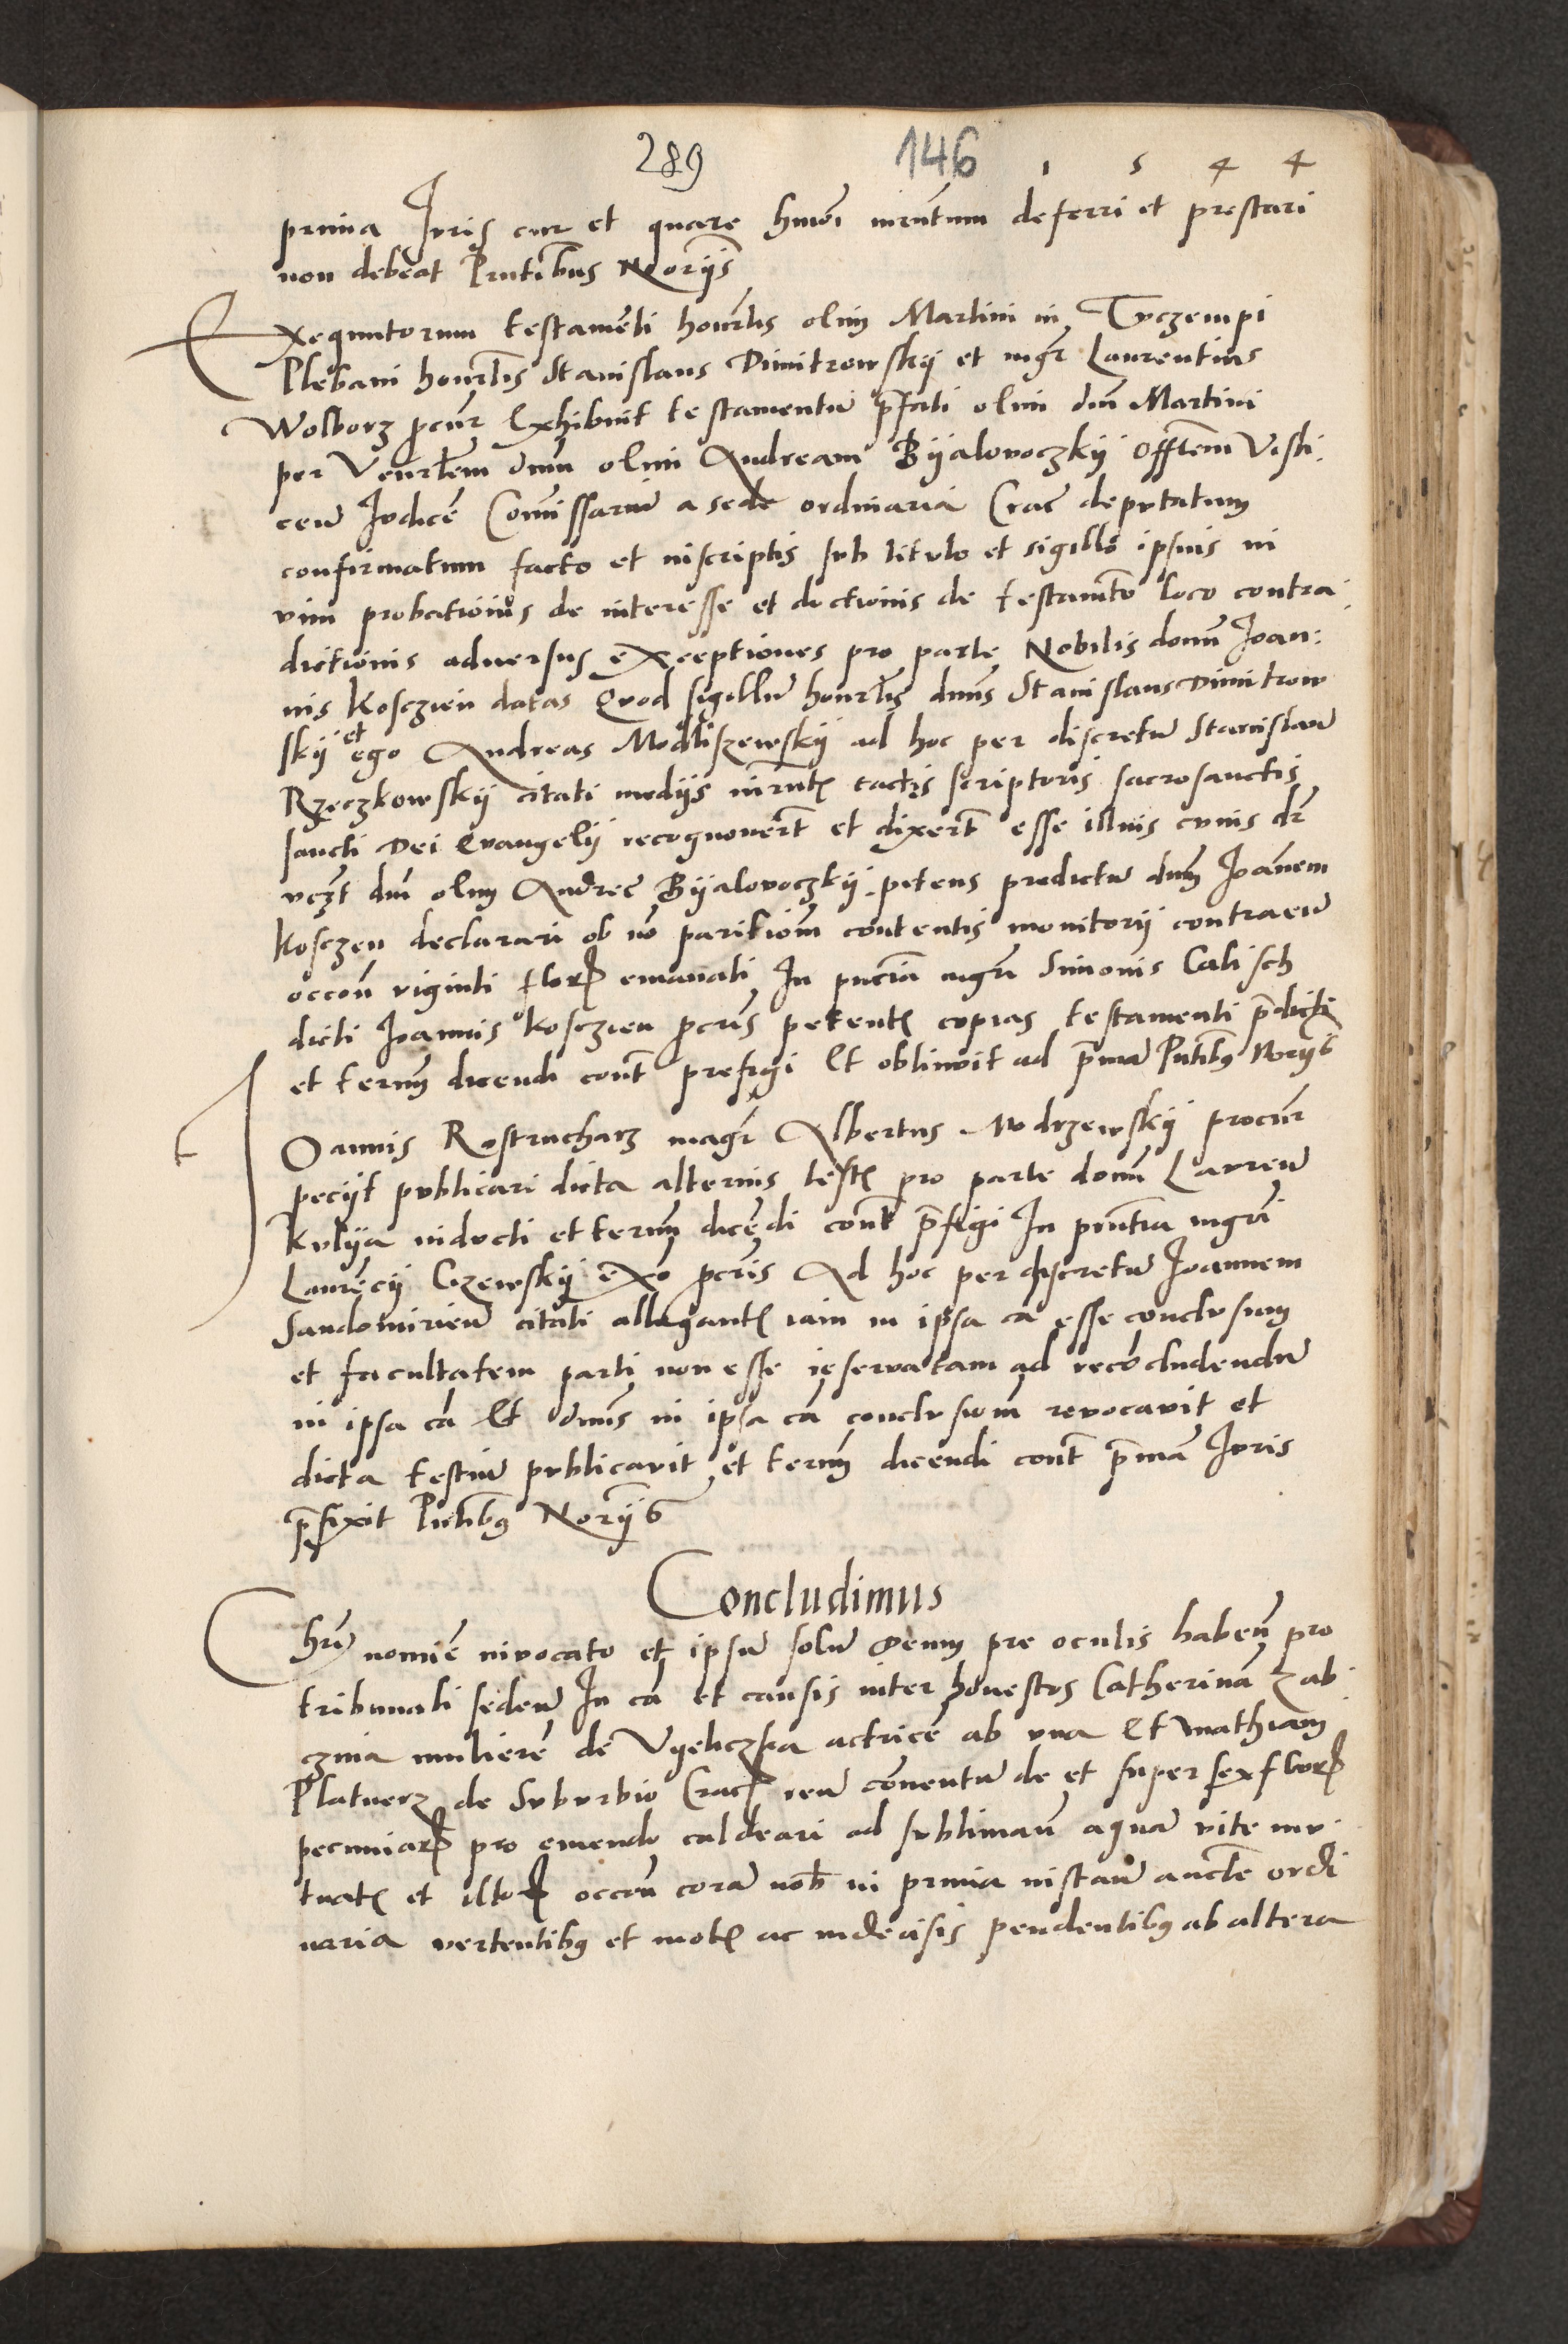 289 146 1 5 4 4
prima Iuris cur et quare hmoi iurntum deferri et prestari
non debeat Pntibus Norijs
Exequutorum testamenti honrlis olim Martini in Tyczempi
Plebani honrlis Stanislaus Dimitrowskij et mgr Laurentius
Wolborz pcur Exhibuit testamentu pfati olim dni Martini
per Venrlem dnum olim Andream Bijalovoczkij Offlem Visli
ceu Iudice Comissariu a sede ordinaria Crac deputatum
confirmatum facto et inscriptis sub titulo et sigillo ipsius in
vim probationis de interesse et doctionis de testamto loco contra
dictionis adversus exceptiones pro parte Nobilis domi Ioan:
nis Kosczien datas Quod sigillu honrlis dnus Stanislaus Dimitrow
skij et ego Andreas Modliszewskij ad hoc per discretu Stanislau
Rzeczkowskij citati medijs iurntis tactis scripturis sacrosanctis
sancti Dei Evangelij recognoverut et dixerut esse illius cuius dr
vczt dni olim Andree Bijalovoczkij petens predictu dnum Ioannem
Kosczen declarari ob no paritiom contentis monitorij contra eu
occon viginti flor emanati In pncia mgri Simonis Calisch
dicti Ioannis Kosczien pcuris petentis copias testamenti predicti
et termu dicendi cont prefigi Et obtinuit ad pma Pntibus Norijs
Ioannis Rostrucharz magr Albertus Modrzewskij procur
pecijt publicari dicta alterius testis pro parte domi Lauren
Kulija inducti et termu dicendi cont prefigi In pntia mgri
Laurecij Czewskij exo pcuris Ad hoc per discretu Ioannem
Sandomirien citati allegantis iam in ipsa ca esse conclusum
et facultatem parti non esse reservatam ad recocludendu
in ipsa ca Et dnus in ipsa ca conclusiom revocavit et
dicta testiu publicavit et termu dicendi cont pma Iuris
prefixit Pntibus Norijs
Concludimus
Chri nomie invocato et ipsu solu Deum pre oculis haben pro
tribunali seden In ca et causis inter honestos Catherina Zab
cznia muliere de Vyeliczka actrice ab una Et Mathiam
Platnerz de Suburbio Crac reu conventu de et super sex flor
pecuniar pro emendo caldeari ad subliman aqua vite mu
tuatis et illor occon cora nob in prima instan aucte ordi
naria vertentibus et motis ac indecisis pendentibus ab altera